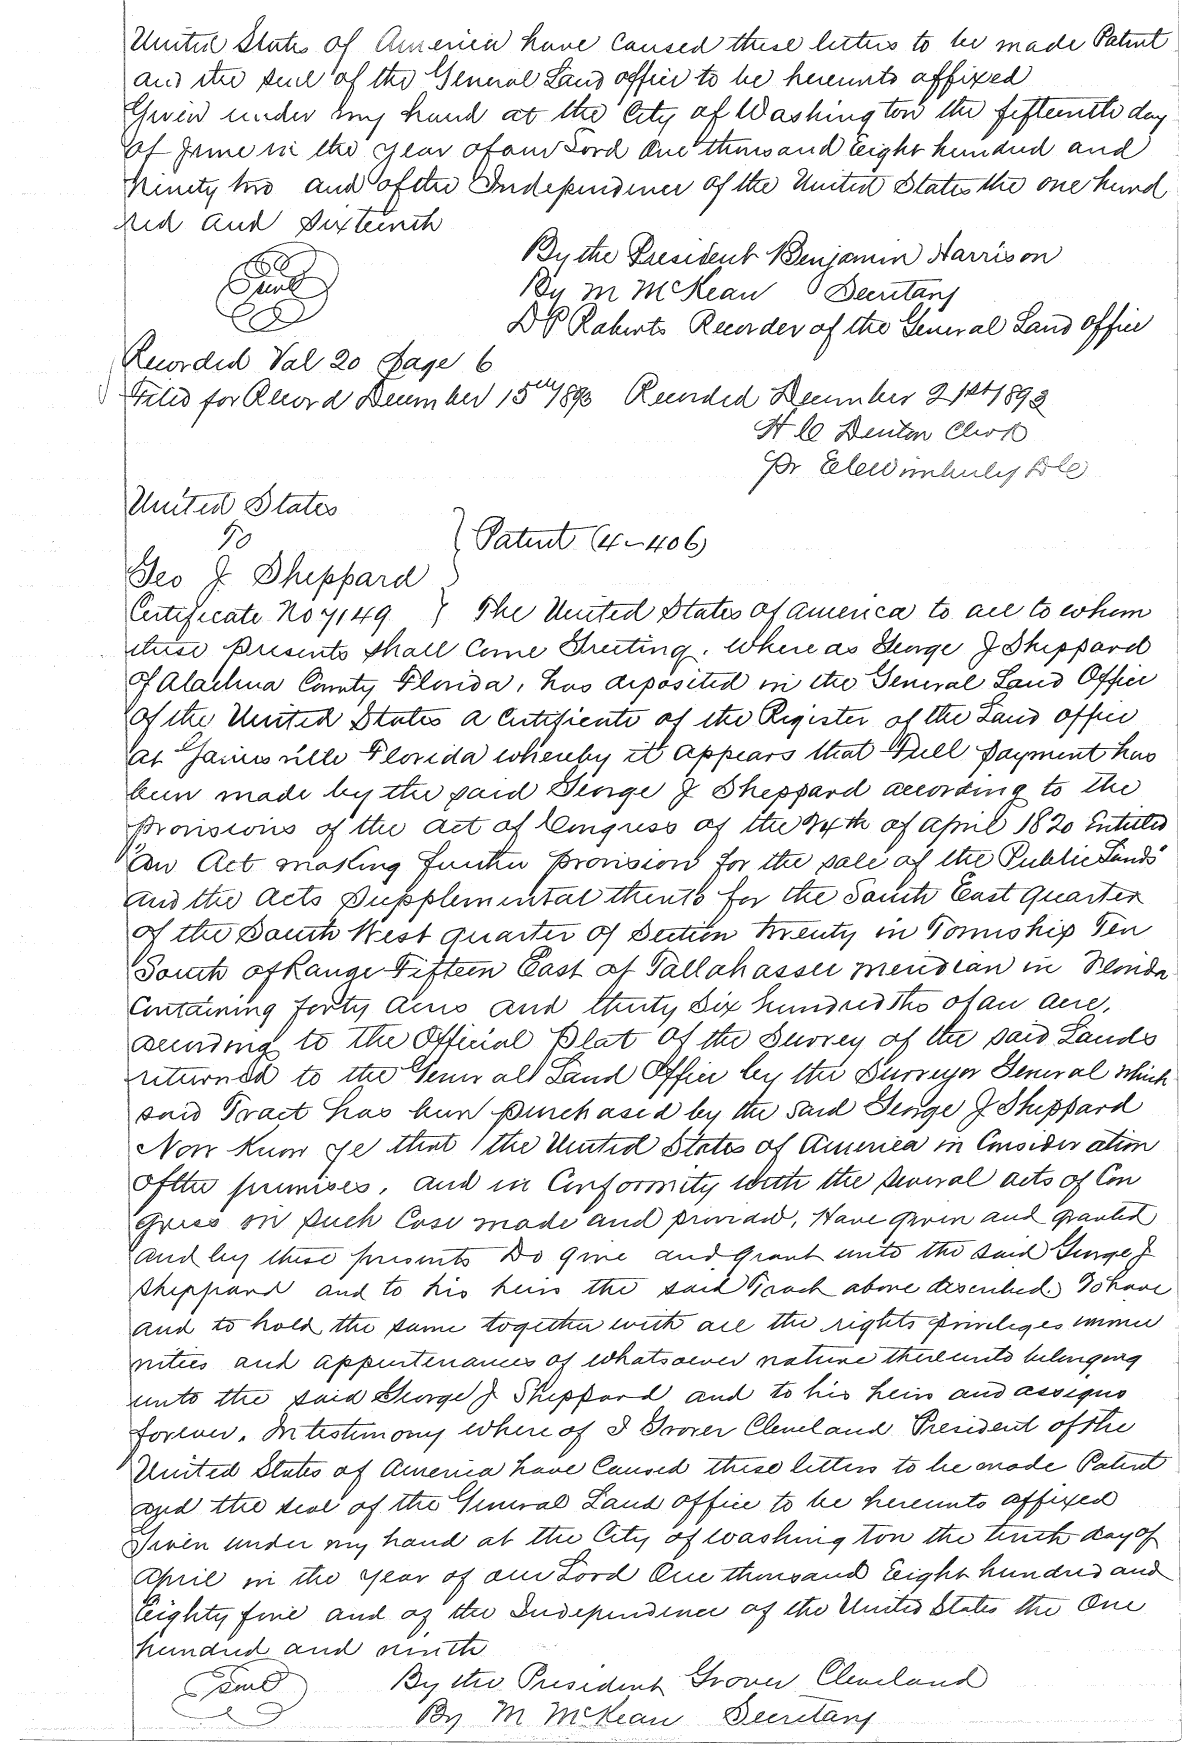 United States of America have caused these letters to be made Patent
and the seal of the General Land office to be hereunto affixed
Given under my hand at the City of Washington the fifteenth day
of June in the year of our Lord One thousand Eight hundred and
ninety two and of the Independence of the United States the one hund
red and sixteenth
By the President Benjamin Harrison
Seal
By M McKean Secretary
D P Roberts Recorder of the General Land office
Recorded Vol 20 Page 6
Filed for Record December 15th 1893 Recorded December 21st 1893
H C Denton Clerk
Pr DC
United States
To
Patent (4-406)
Geo J Sheppard
Certificate No 7149 } The United States of America to all to whom
these presents shall come Greeting. Where as George J Sheppard
of Alachua County Florida, has deposited in the General Land Office
of the United States a Certificate of the Register of the Land office
at Gainesville Florida whereby it appears that Full payment has
been made by the said George J Sheppard according to the
provisions of the Act of Congress of the 24th of April 1820 Entitled
"An Act making further provision for the sale of the Public Lands"
and the Acts Supplemental thereto for the South East quarter
of the South West quarter of Section twenty in Township Ten
South of Range Fifteen East of Tallahassee meridian in Florida
Containing forty acres and thirty six hundredths of an acre,
according to the Official Plat of the Survey of the said Lands
returned to the General Land Office by the Surveyor General which
said Tract has been purchased by the said George J Sheppard
Now Know ye that the United States of America in Consideration
of the premises, and in Conformity with the several acts of Con
gress in such Case made and provided, Have given and granted
and by these presents Do give and grant unto the said George J
Sheppard and to his heirs the said Tract above described. To have
and to hold the same together with all the rights privileges immu
nities and appurtenances of whatsoever nature thereunto belonging
unto the said George J Sheppard and to his heirs and assigns
forever. In testimony where of I Grover Cleveland President of the
United States of America have Caused these letters to be made Patent
and the seal of the General Land office to be hereunto affixed
Given under my hand at the City of Washington the tenth day of
April in the year of our Lord One thousand Eight hundred and
Eighty five and of the Independence of the United States the One
hundred and ninth
Seal By the President Grover Cleveland
By M McKean Secretary